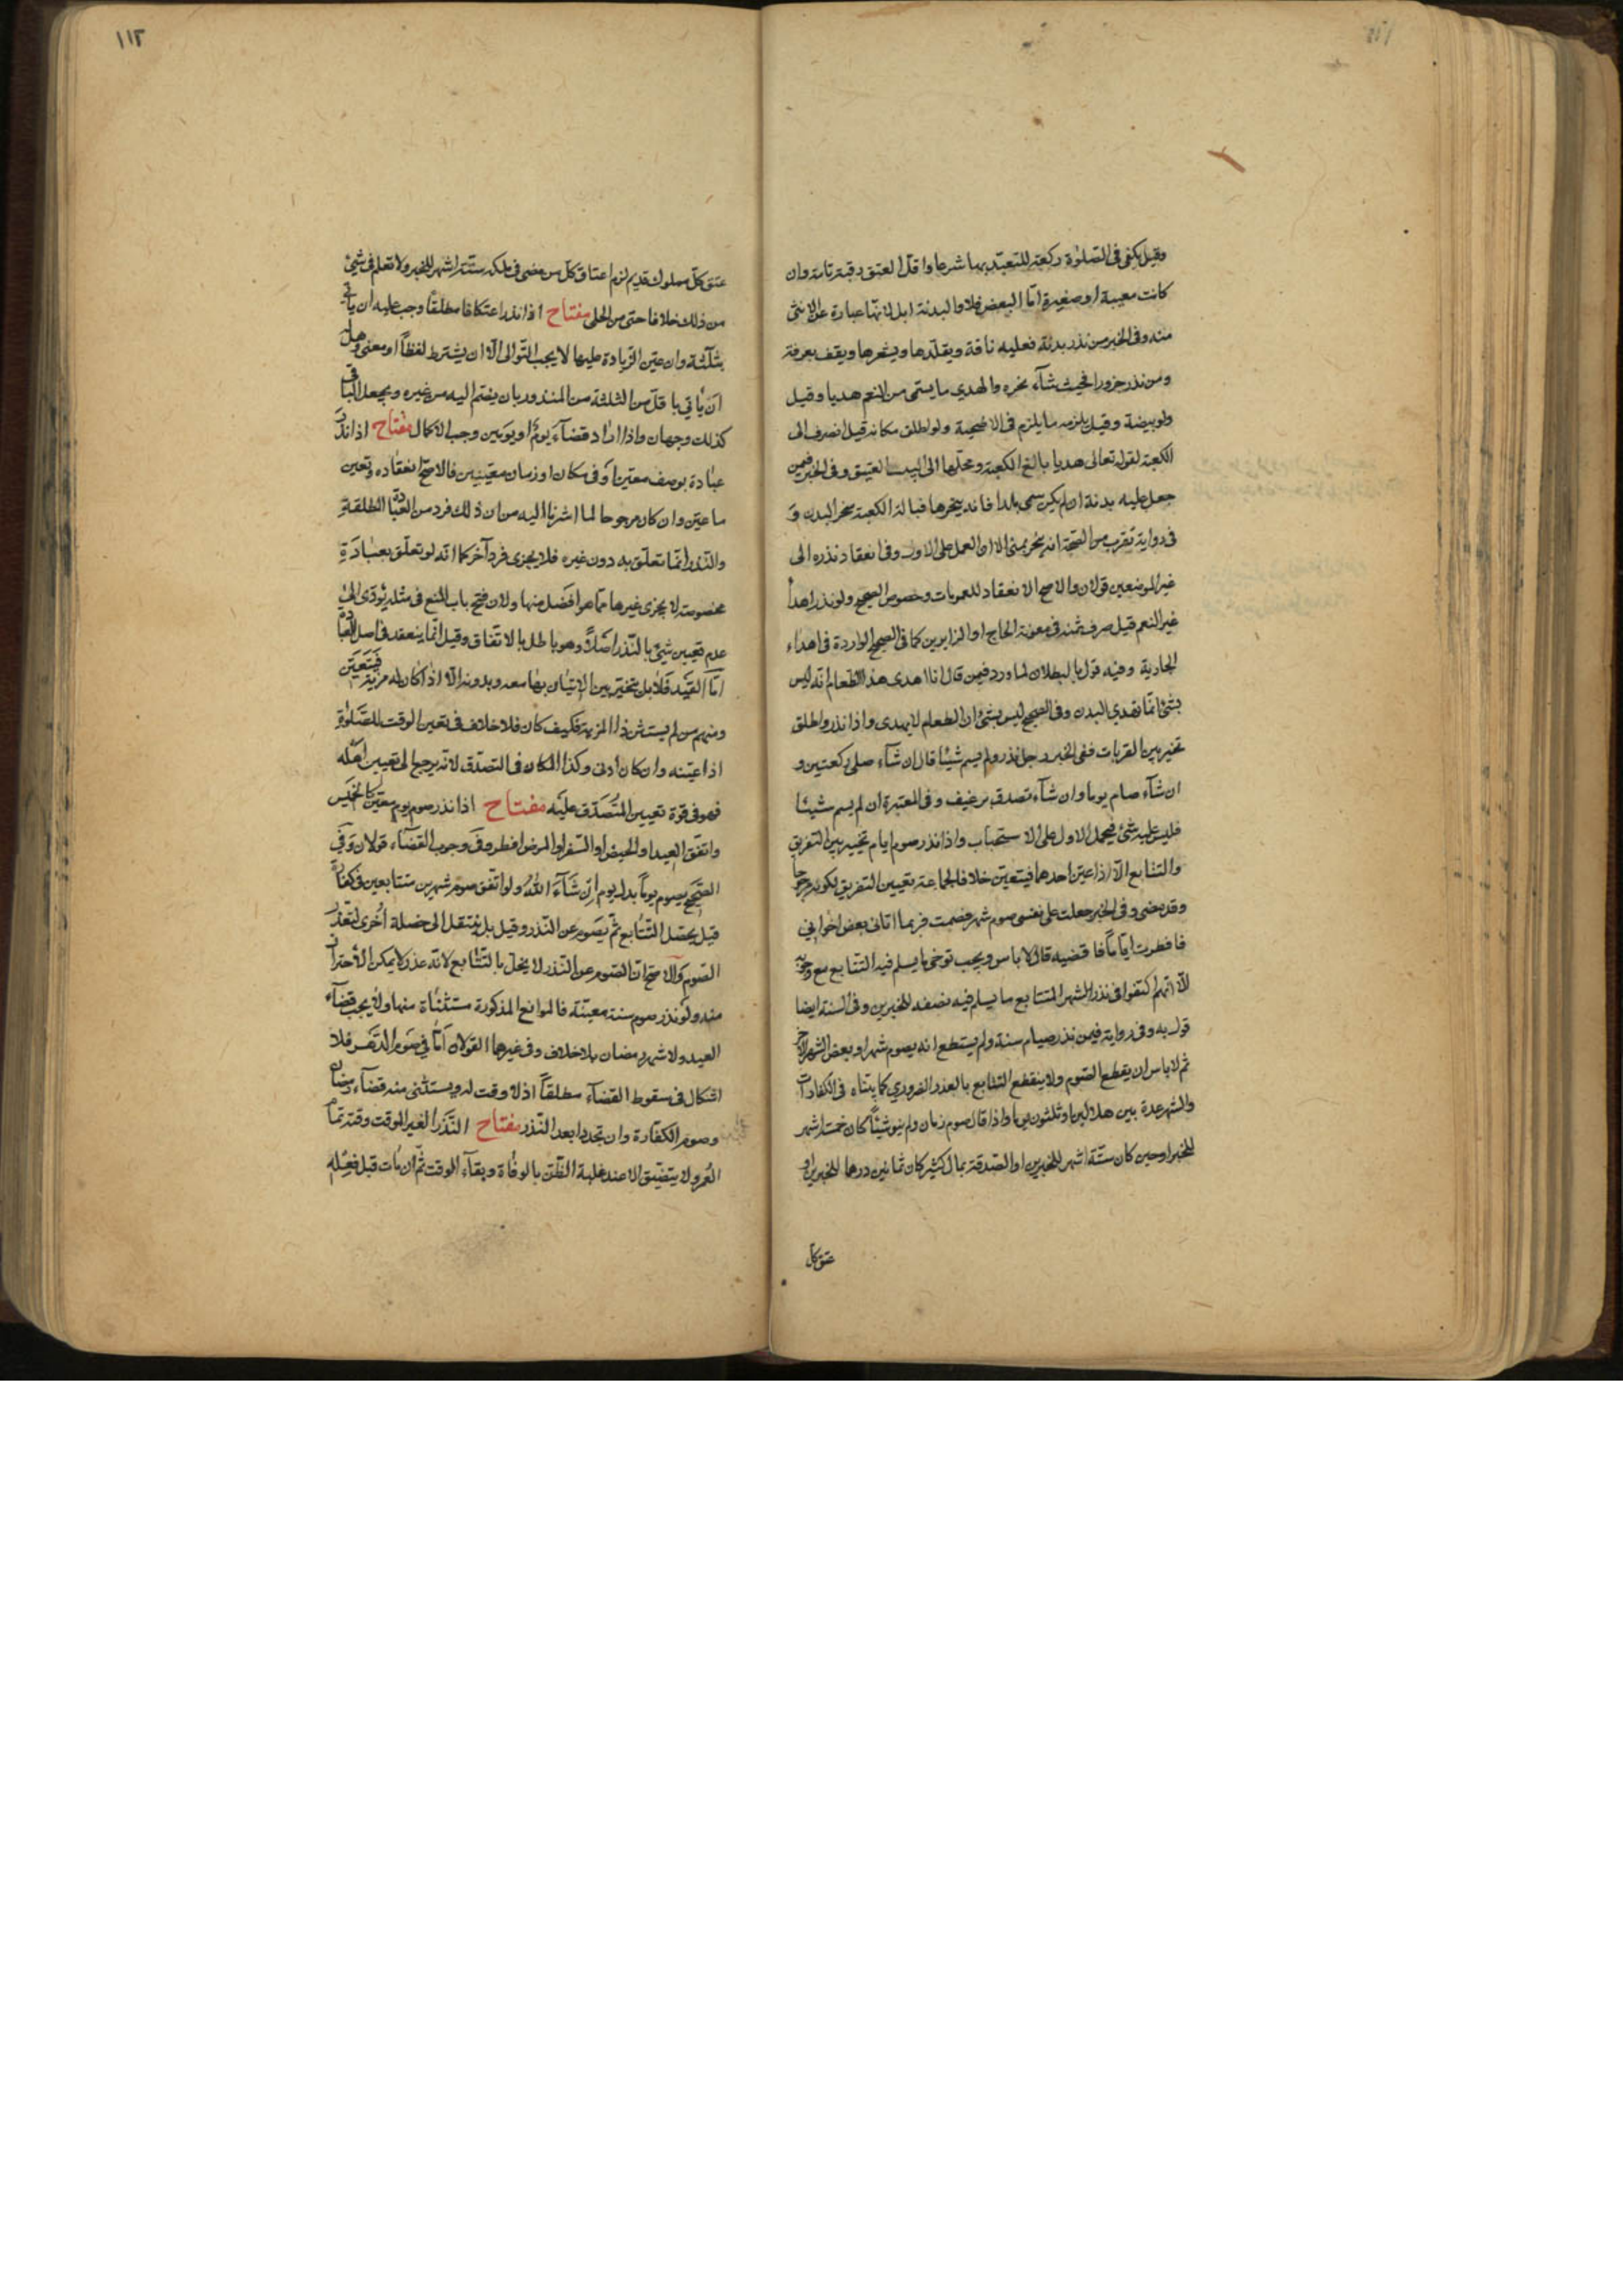 وقيل يكفى فى الصلوة ركعة للتعبد بها شرعا واقل العتق رقبة تامة وان
كانت معيبة او صغيرة امّا البعض فلا والبدنة ابل لانها عبارة عن الانثى
منه وفى الخبر من نذر بدنة فعليه ناقة ويقلّدها ويشعرها ويقف بعرفة
ومن نذر جزورا فحيث شآء نحره والهدي ما يسمى من النعم هديا وقيل
ولو بيضة وقيل يلزمه ما يلزم فى الاضحية ولو اطلق مكانه قيل انصرف الى
الكعبة لقوله تعالى هديا بالغ الكعبة ومحلّها الى البيت العتيق وفى الخبر فيمن
جعل عليه بدنة ان لم يكن سمى بلدا فانه ينحرها قبالة الكعبة منحر البدن و
فى رواية تقرب من الصحة انه ينحر بمنى الا ان العمل على الاول وفى انعقاد نذره الى
غير الموضعين قولان والاصح الانعقاد للعمومات وخصوص الصحيح ولو نذر اهدأ
غير النعم قيل صرف ثمنه فى معونة الحاج او الزايرين كما فى الصحيح الواردة فى اهداء
الجارية وفيه قول بالبطلان لما ورد فيمن قال انا اهدى هذا الطعام انه ليس
بشئ انما تهدي البدن وفى الصحيح ليس بشئ ان الطعام لا يهدى واذا نذر واطلق
تخير بين القربات ففى الخبر رجل نذر ولم يسم شيئا قال ان شآء صلى ركعتين و
ان شآء صام يوما وان شآء تصدق برغيف وفى المعتبرة ان لم يسم شيئا
فليس عليه شئ فيحمل الاول على الاستحباب واذا نذر صوم ايام تخيير بين التفريق
والتتابع الّا اذا عيّن احدهما فيتعين خلافا لجماعة بتعيين التفريق لكونه مرجوحا
وقد مضى وفى الخبر جعلت على نفسى صوم شهر فصمت فربما اتانى بعض اخوانى
فافطرت ايّاماً فاقضيه قال لا باس ويجب توخى ما يسلم فيه التتابع مع وجوبه
الّا انّهم اكتفوا فى نذر الشهر المتتابع ما يسلم فيه نصفه للخبرين وفى السنة ايضا
قول به وفى رواية فيمن نذر صيام سنة ولم يستطع انه يصوم شهرا وبعض الشهر الاخر
ثم لا باس ان يقطع الصوم ولا ينقطع التتابع بالعذر الضروري كما بيّناه فى الكفارات
والشهر عدة بين هلالين او ثلثون يوما واذا قال صوم زمان ولم ينو شيئا كان خمسة اشهر
للخبر او حين كان ستّة اشهر للخبرين او الصدقة بمال كثير كان ثمانين درهما للخبرين او
عتق كل
١١٢
عتق كلّ مملوك قديم لزم اعتاق كلّ من مضى فى ملكه ستّة اشهر للخبر ولا نعلم فى شئ
من ذلك خلافا حتى من الحلى مفتاح اذا نذر اعتكافا مطلقًا وجب عليه ان يأتي
بثلثة وان عيّن الزّيادة عليها لا يجب التّوالى الّا ان يشترط لفظاً او معنى وهل
ان يأتي باقل من الثلثة من المنذور بان يضم اليه من غيره ويجعل الباقى
كذلك وجهان واذا اراد قضآء يوم او يومين وجب الاكمال مفتاح اذا نذر
عبادة بوصف معيّن او فى مكان او زمان معيّنين فالاصح انعقاده وتعين
ما عيّن وان كان مرجوحا لما اشرنا اليه من ان ذلك فرد من العبادة المطلقة
والنذر انّما تعلّق به دون غيره فلا يجزى فرد آخر كما انّه لو تعلّق بعبادة
مخصوصة لا يجزى غيرها ممّا هو افضل منها ولان فتح باب المنع فى مثله يؤدّى الى
عدم تعيين شئ بالنّذر اصلاً وهو باطل بالاتّفاق وقيل انّما ينعقد فى اصل العبادة
امّا القيد فلا بل يتخيّر بين الاتيان بها معه وبدونه الّا اذا كان له مزيّة فيتعيّن
ومنهم من لم يستثن ذا المزية فكيف كان فلا خلاف فى تعين الوقت للصّلوة
اذا عيّنه وان كان ادنى وكذا المكان فى التصدّق لانّه يرجع الى تعيين اهله
فهو فى قوة تعيين المُتصدّق عليه مفتاح اذا نذر صوم يوم معيّن كالخميس
واتفق العيد او الحيض او السّفر او المرض افطر وفى وجوب القضآء قولان وفي
الصّحيح يصوم يوماً بدل يوم ان شآء الله ولو اتّفق صوم شهرين متتابعين فى كفّارة
قيل يحصل التّتابع ثمّ يصوم عن النّذر وقيل بل ينتقل الى خصلة اُخرى لتعذّر
الصّوم والاصح انّ الصّوم عن النّذر لا يخل بالتّتابع لانّه عذر لا يمكن الاحتراز
منه ولو نذر صوم سنة معيّنة فالموانع المذكورة مستثناة منها ولا يجب قضآء
العيد ولا شهر رمضان بلا خلاف وفى غيرها القولان امّا في صوم الدّهر فلا
اشكال فى سقوط القضآء مطلقاً اذ لا وقت له ويستثنى منه قضآء رمضان
وصوم الكفّارة وان تجددا بعد النّذر مفتاح النّذر الغير الموقت وقته تمام
العمر ولا يتضيّق الا عند غلبة الظّنّ بالوفاة وبقآء الوقت ثمّ ان مات قبل فعله